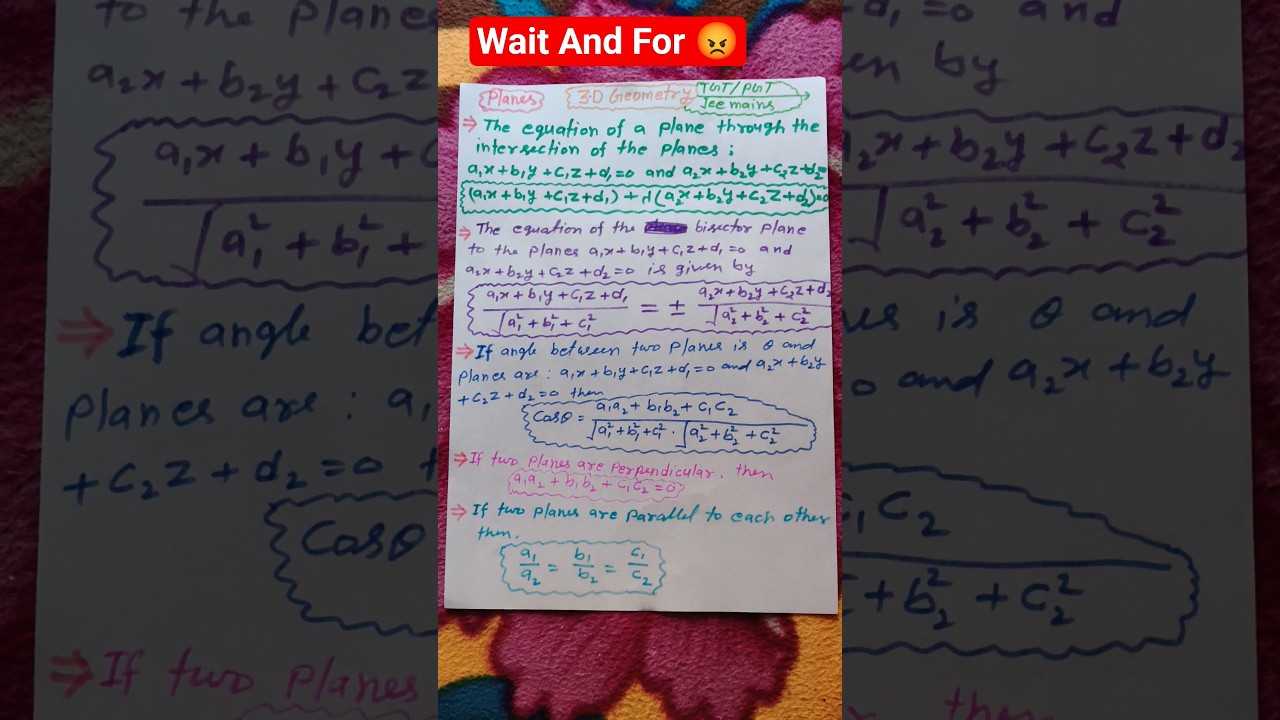 Wait And For 😡
Planes
3-D Geometry
TGT/PGT
Jee mains
⇒ The equation of a plane through the
intersection of the planes :
a₁x + b₁y + c₁z + d₁ = 0 and a₂x + b₂y + c₂z + d₂=
(a₁x + b₁y + c₁z + d₁) + λ(a₂x + b₂y + c₂z + d₂)=0
⇒ The equation of the bisector plane
to the planes a₁x + b₁y + c₁z + d₁ = 0 and
a₂x + b₂y + c₂z + d₂ = 0 is given by
(a₁x + b₁y + c₁z + d₁)/√(a₁² + b₁² + c₁²) = ± (a₂x + b₂y + c₂z + d₂)/√(a₂² + b₂² + c₂²)
⇒ If angle between two planes is θ and
planes are : a₁x + b₁y + c₁z + d₁ = 0 and a₂x + b₂y
+ c₂z + d₂ = 0 then
Cosθ = (a₁a₂ + b₁b₂ + c₁c₂)/(√(a₁² + b₁² + c₁²) · √(a₂² + b₂² + c₂²))
⇒ If two planes are perpendicular, then
a₁a₂ + b₁b₂ + c₁c₂ = 0
⇒ If two planes are parallel to each other
then.
a₁/a₂ = b₁/b₂ = c₁/c₂